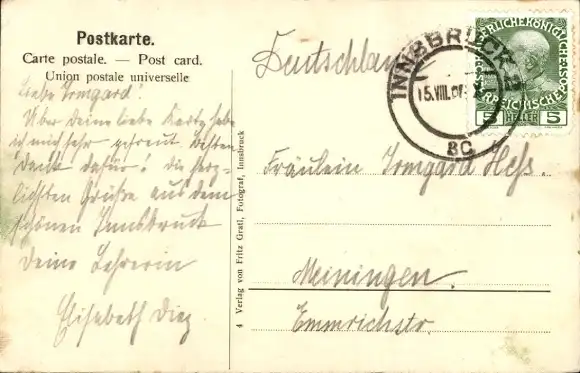 Postkarte.
Carte postale. — Post card.
Union postale universelle
Liebe Irmgard!
Über Deine liebe Karte habe
ich mich sehr gefreut. Besten
Dank dafür! Die herz-
lichsten Grüße aus dem
schönen Innsbruck
Deine Lehrerin
Elisabeth Diez
4 Verlag von Fritz Gratl, Fotograf, Innsbruck
Deutschland
INNSBRUCK 2
15.VIII.
8C
KAISERLICHE KÖNIGLICHE
ÖSTERREICHISCHE
5 HELLER 5
Fräulein Irmgard Heß.
Meiningen.
Emmrichstr.